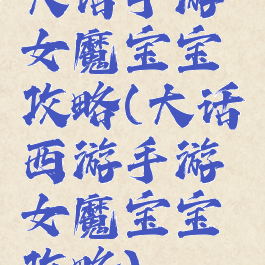 大话手游
女魔宝宝
攻略(大话
西游手游
女魔宝宝
攻略)